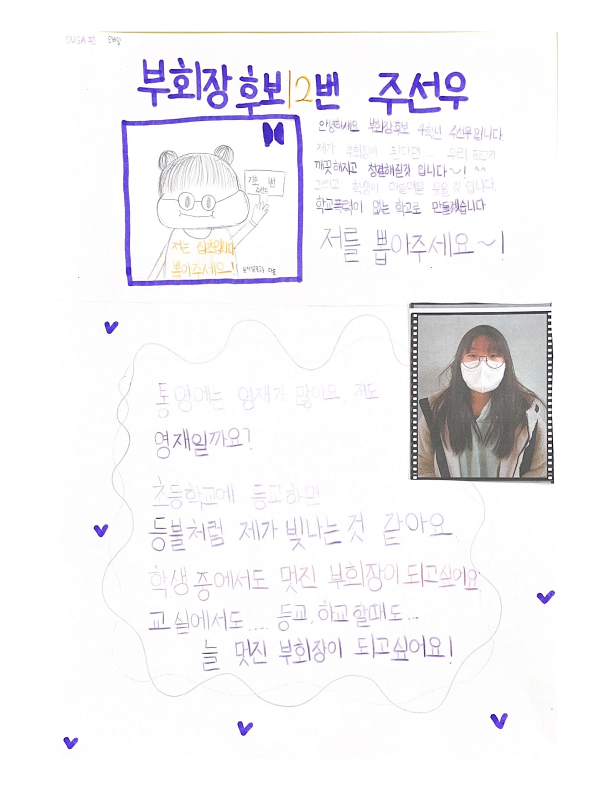 SUGA
부회장 후보 12번 주선우
안녕하세요 부회장후보 4학년 주선우입니다
제가 부회장이 된다면 우리 학교가
깨끗해지고 청결해질것 입니다~! ^^
학교폭력이 없는 학교로 만들겠습니다
저를 뽑아주세요~!
기호 번
저는 입니다
뽑아주세요!!
통영에는 영재가 많아요. 저도
영재일까요?
초등학교에 등교하면
등불처럼 제가 빛나는것 같아요.
학생 중에서도 멋진 부회장이 되고싶어요
교실에서도.... 등교, 하교 할때도...
늘 멋진 부회장이 되고싶어요!